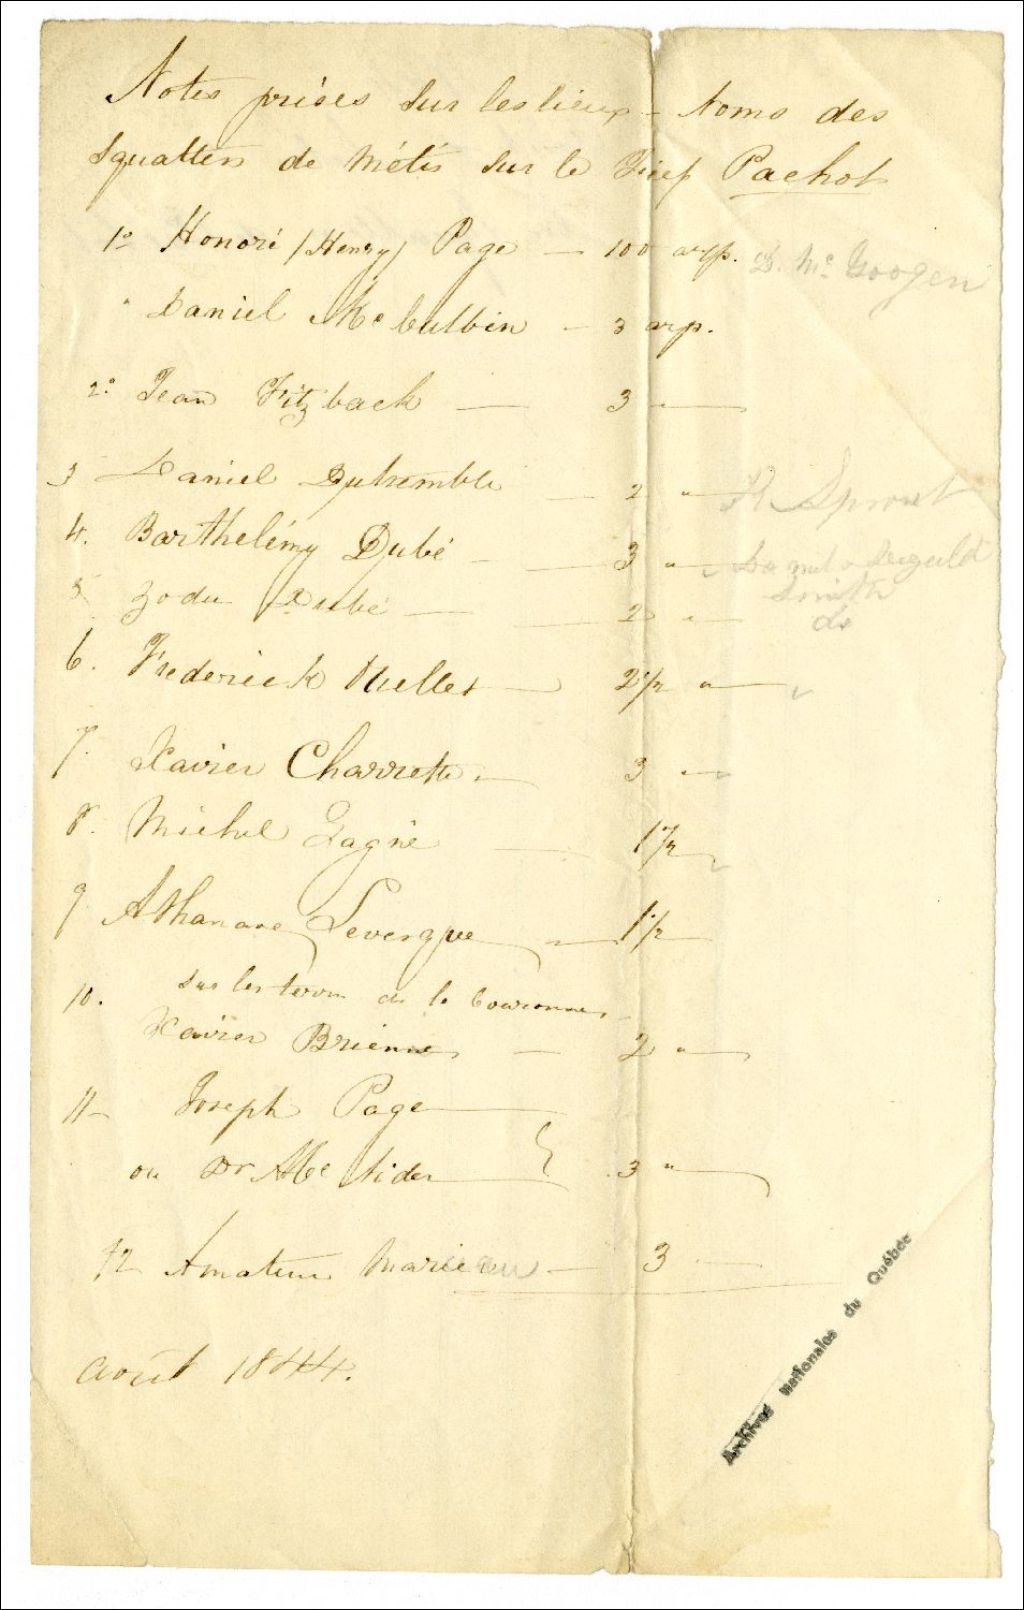 Notes prises sur les lieux - Noms des
squatters de Métis sur le Fief Pachot
1º Honoré / Henry / Page — 100 arp. D. Mc Googen
" Daniel Mc Cubbin — 3 arp.
2º Jean Fitzback — 3 —
3 Daniel Dutremble — 2 " — R Sprout
4. Barthelémy Dubé — 3 "
5 Dubé — 2 " — Smith
do
6. Frederick Muller — 2 1/2 " —
7. Xavier Charrette — 3 " —
8. Michel Gagné — 1 1/2
9 Athanase Levesque — 1 1/2 —
10. sur les terres de la Couronne
Xavier Brienne — 2 " —
11 - Joseph Page —
ou Dr Mc Nider — } 3 " —
12 Amateur Marie — 3 —
août 1844.
Archives Nationales du Québec